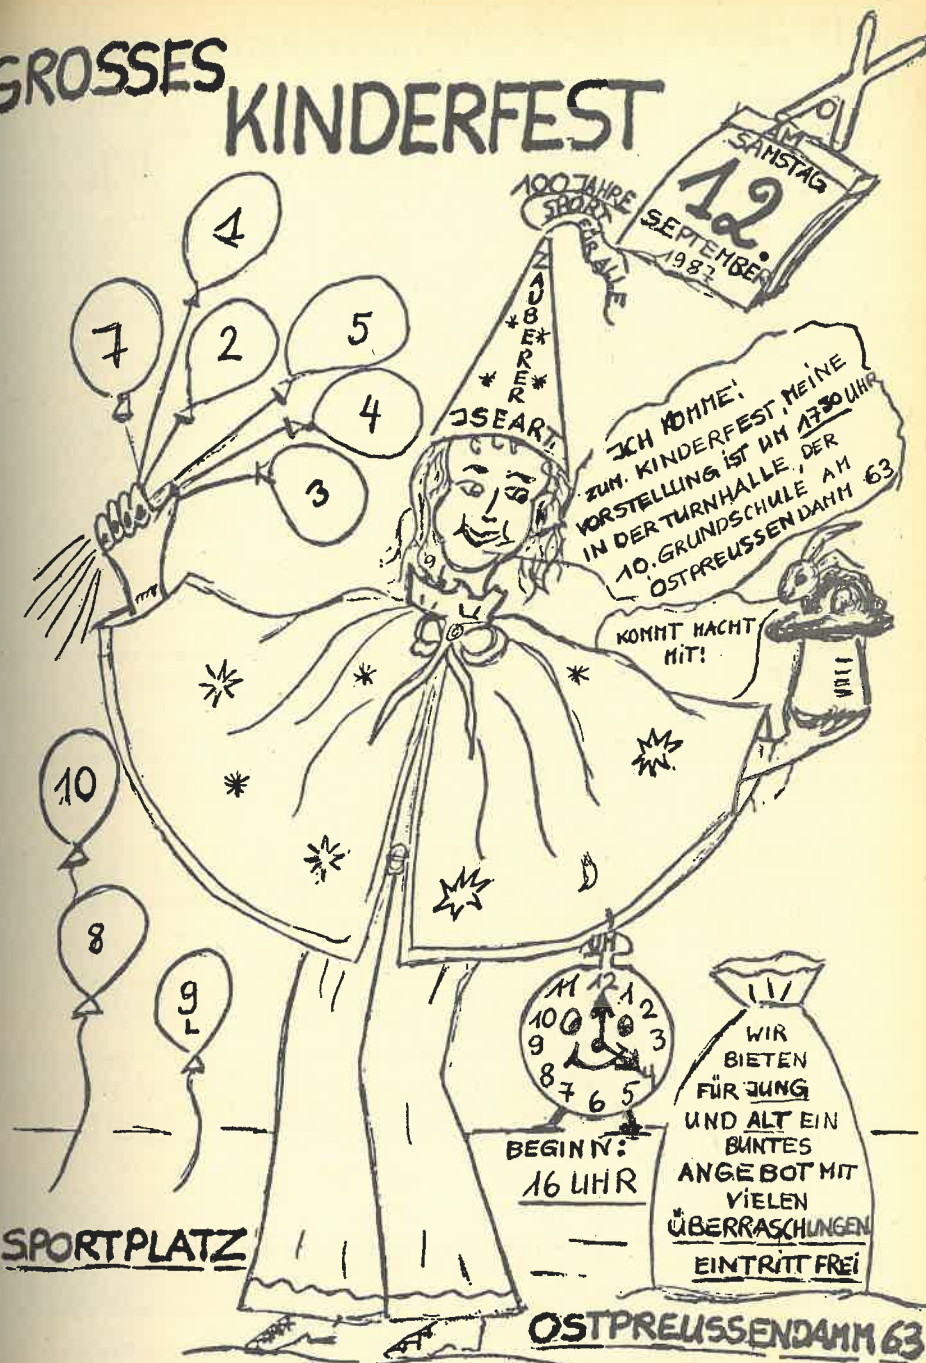 GROSSES
KINDERFEST
AM
SAMSTAG
12.
SEPTEMBER
1987
100 JAHRE
SPORT
FÜR ALLE
ZAUBERER
ISEART
1
7
2
5
4
3
ICH KOMME!
ZUM KINDERFEST, MEINE
VORSTELLUNG IST UM 17³⁰ UHR
IN DER TURNHALLE, DER
10. GRUNDSCHULE AM
OSTPREUSSENDAMM 63
KOMMT MACHT
MIT!
10
8
9
UM
11 12 1
10 2
9 3
8 4
7 6 5
BEGINN:
16 UHR
WIR
BIETEN
FÜR JUNG
UND ALT EIN
BUNTES
ANGEBOT MIT
VIELEN
ÜBERRASCHUNGEN
EINTRITT FREI
SPORTPLATZ
OSTPREUSSENDAMM 63